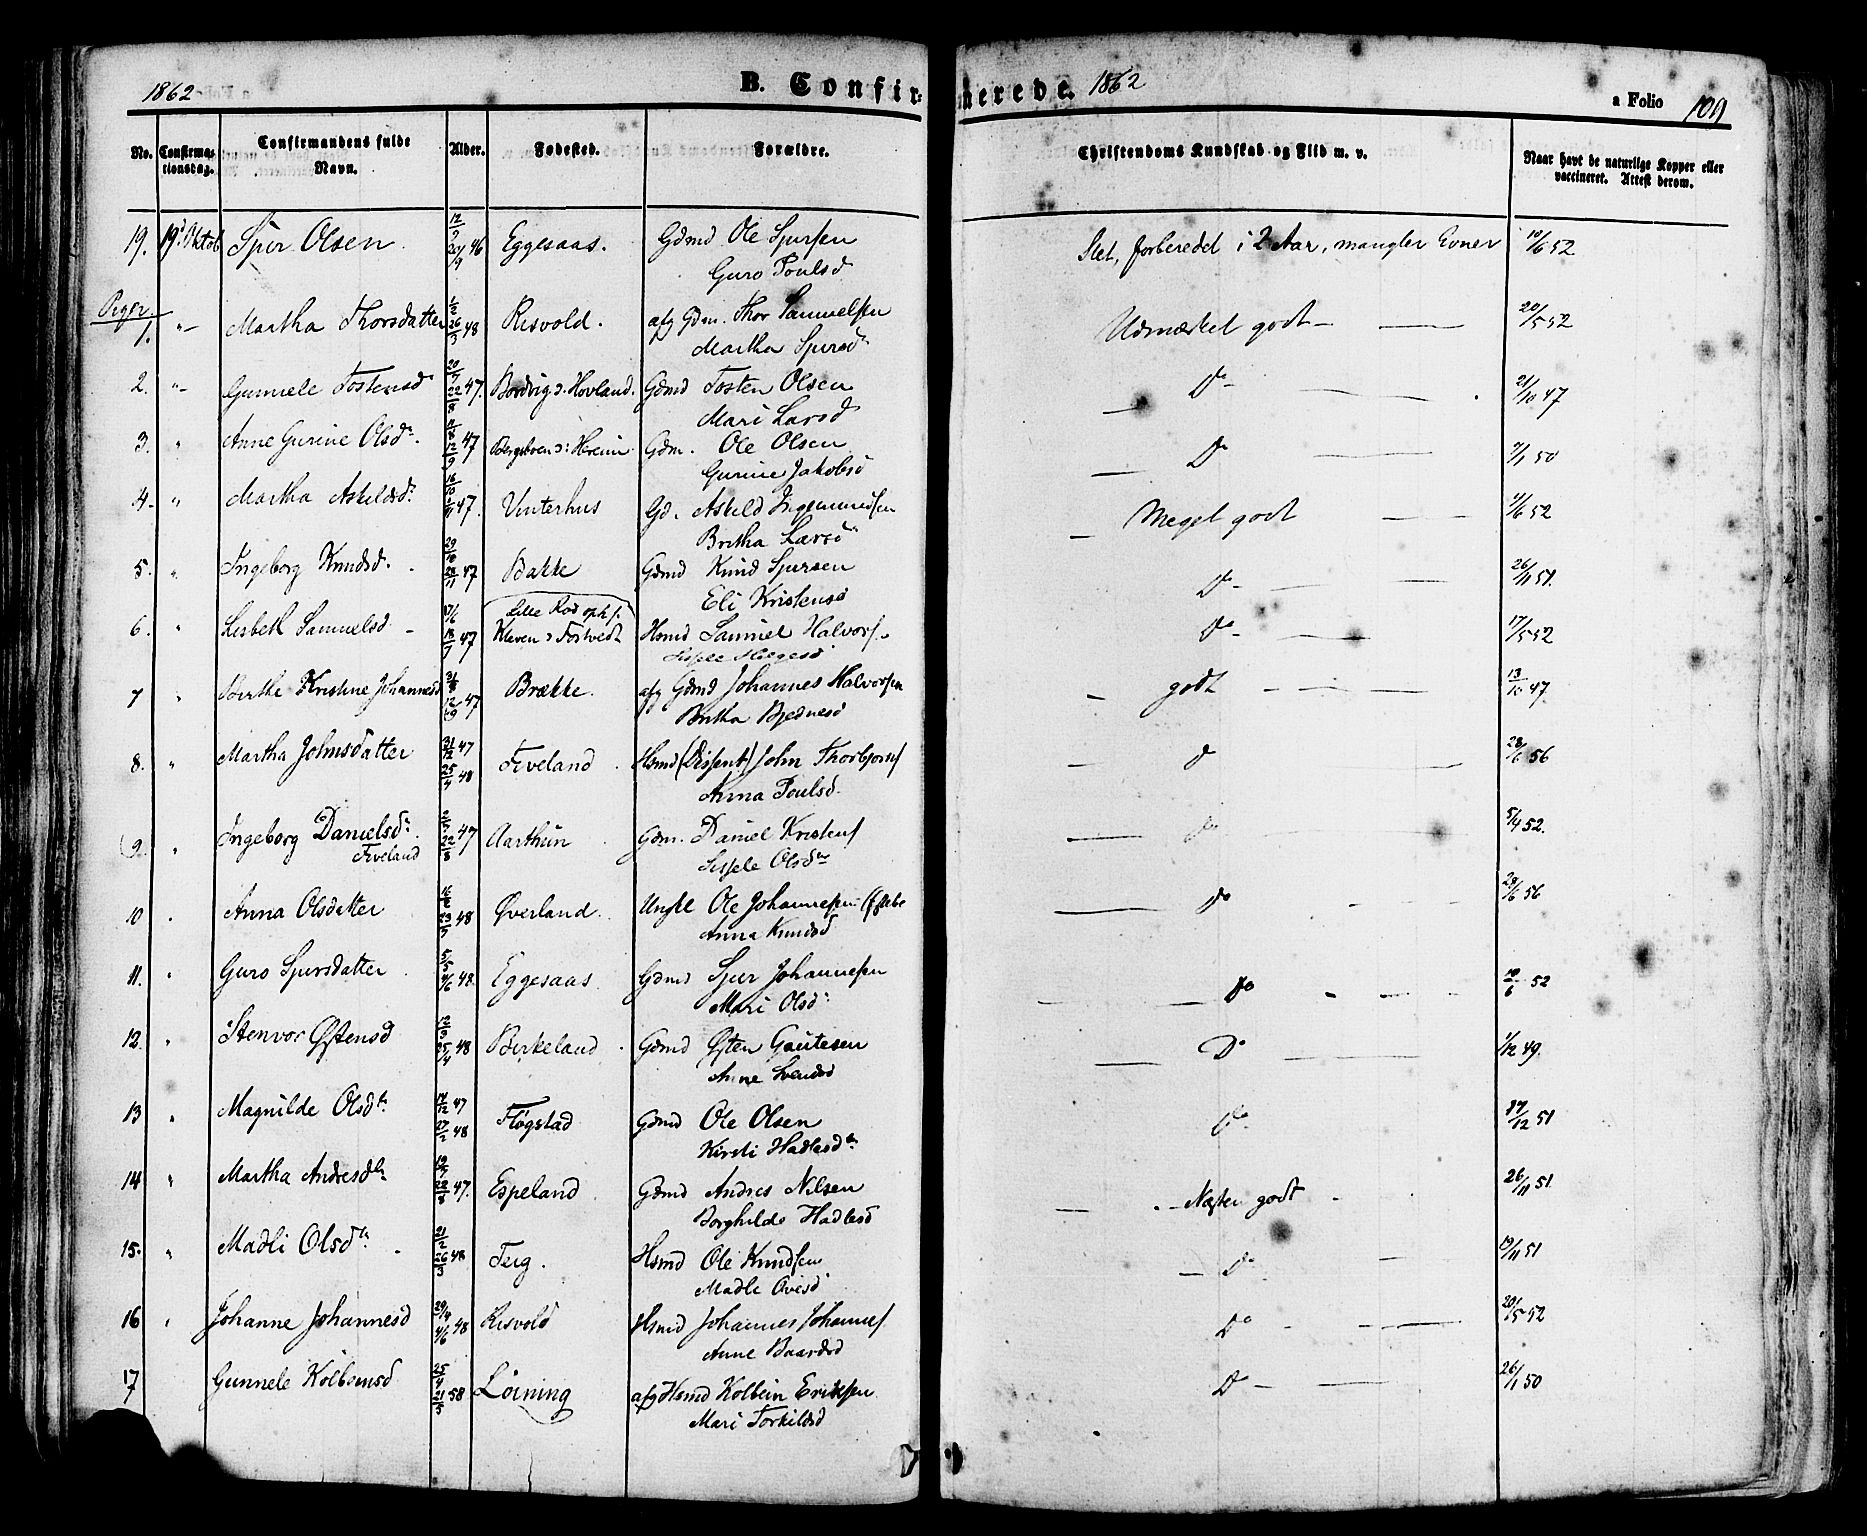 1862 B. Confirmerede. 1862 a Folio 109
No. Confirmationsdag. Confirmandens fulde Navn. Alder. Fødested. Forældre. Christendoms Kundskab og Flid m. v. Naar havt de naturlige Kopper eller vaccineret. Attest derom.
19. 19d Oktob Sjur Olsen 46 Eggesaas. Gdmd Ole Sjursen Slet, forberedet i 2 Aar, mangler Evner 10/6 52
Guro Poulsd
Piger
1. "- Martha Thorsdatter 26/3 48 Risvold. afg Gdm. Thor Samuelsen Udmærket godt - 20/5 52
Martha Sjursdr
2. "- Gunnele Tostensd 20/7 22/8 47. Bordvig v. Hovland. Gdmd Tosten Olsen Do - 21/10 47
Mari Larsd
3. " Anne Gurine Olsdr. 12/9 47 Gdm. Ole Olsen Do 7/1 50
Gurine Jakobsd
4. " Martha Askildsdr 16/10 47. Vinterhus Gd. Askild Ingemundsen Meget godt 9/6 52
Britha Larsdr
5. " Ingeborg Knudsd. 29/10 28/11 47 Bakke Gdmd Knud Sjursen Do - 26/11 51.
Eli Kristensd
6. " Lisbeth Samuelsd 17/6 18/7 47 Lille Rød opk f. Kleven v Tostvedt Hsmd Samuel Halvors. Do - 17/5 52
Sissele Helgesd
7 " Berthe Kristine Johannesd 31/8 12/9 47 Brække. afg Gdmd Johannes Halvorsen godt 13/10 47.
Britha Bjednesd
8. " Martha Johnsdatter 31/12 47 25/4 48 Fiveland. Hsmd (Dissent) John Thorbjørns do 28/6 56
Anna Poulsd.
9. " Ingeborg Danielsdr. Fiveland 22/8 47 Aarthun Gdm. Daniel Kristens do 5/4 52.
Sissele Olsdtr
10 . Anna Olsdatter 16/2 23/3 48 Øverland. Ungkl Ole Johannesen Eftebø do 28/6 56
Anna Knudsd
11. " Guro Sjursdatter 5/5 4/6 48 Eggesaas Gdmd Sjur Johannesen do 10/6 52
Mari Olsdr
12. " Stenvor Østensd 12/3 25/4 48 Birkeland. Gdmd Østen Gautesen Do 1/12 49.
Anne Svendsd
13 " Magnilde Olsdtr 14/12 47 27/2 48 Fløgstad Gdmd Ole Olsen Do 27/12 51
Kirsti Hadlesdtr
14 " Martha Andresdtr 19/7 29/8 47. Espeland. Gdmd Andres Nilsen Næsten godt 26/11 51.
Borghilde Hadlesd
15. " Madli Olsdtr. 21/2 26/3 48 Teig. Hsmd Ole Knudsen Do 19/11 51
Madle Ovesd
16 " Johanne Johannesd 29/4 4/6 48 Risvold Hsmd Johannes Johannes Do - 20/5 52
Anne Baardsd
17 Gunnele Kolbensd 25/4 21/5 58 Løining afg Hsmd Kolbein Eriksen Do - 26/1 50
Mari Torkildsd